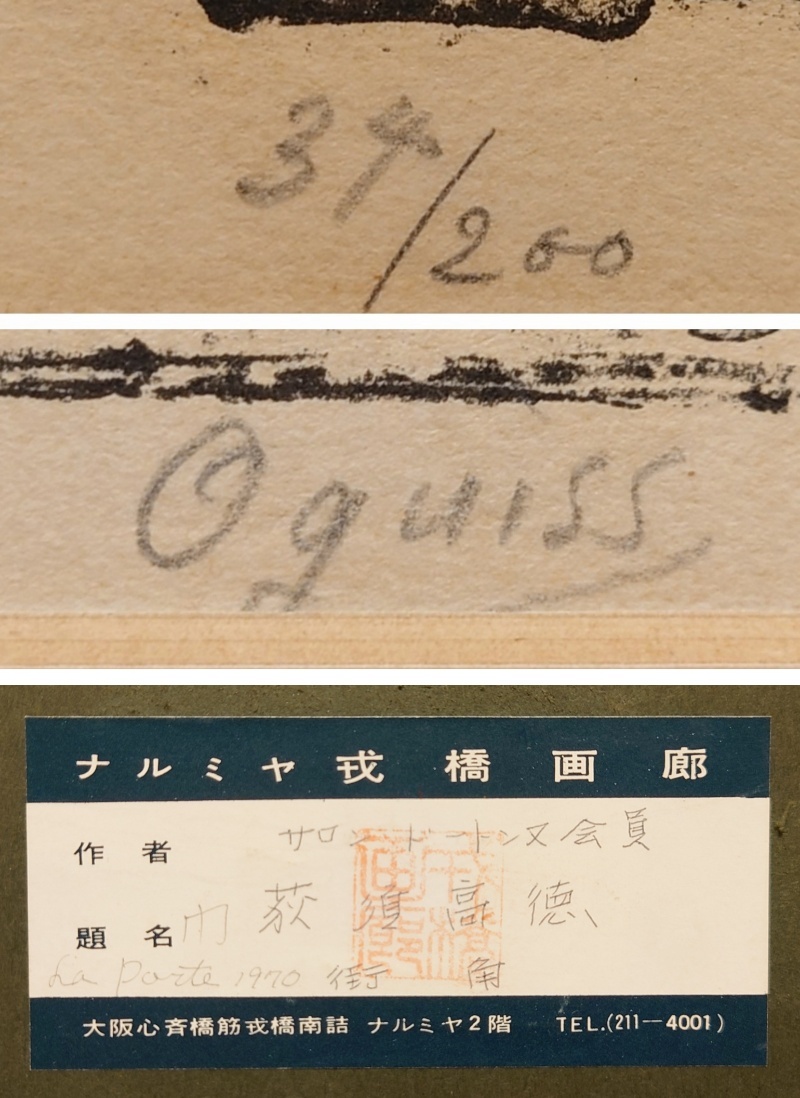 34/200
Oguiss
ナルミヤ 戎橋画廊
作者 サロンドートンヌ会員
荻須高徳
題名 門
La Porte 1970 街角
大阪心斉橋筋戎橋南詰 ナルミヤ2階 TEL.(211—4001)